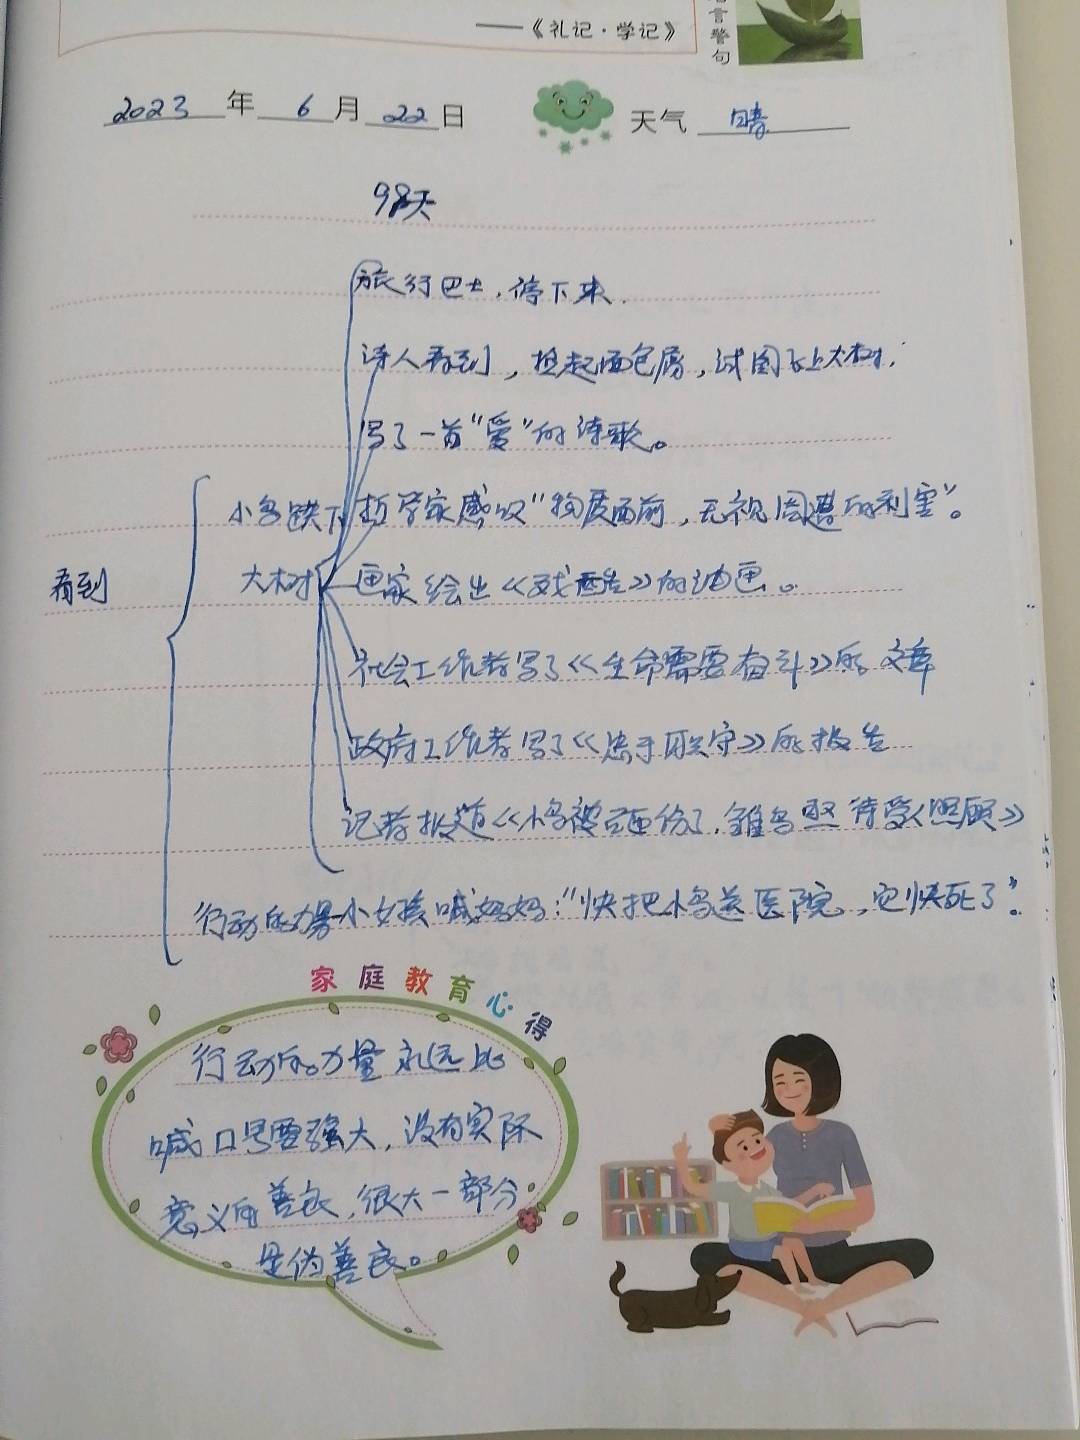 ——《礼记·学记》
言警句
2023年6月22日 天气 晴
98天
旅行巴士，停下来.
诗人看到，担起面包屑，试图飞上大树，
写了一首“爱”的诗歌。
小鸟跌下 哲学家感叹“物质面前，无视周遭的利害”。
看到 大树 画家绘出《残酷》的油画。
社会工作者写了《生命需要奋斗》的文章
政府工作者写了《忠于职守》的报告
记者报道《小鸟被压伤了，雏鸟 待受照顾》
行动的力量 小女孩喊妈妈：“快把小鸟送医院，它快死了”.
家庭教育心得
行动的力量永远比
喊口号要强大，没有实际
意义的善良，很大一部分
是伪善良。